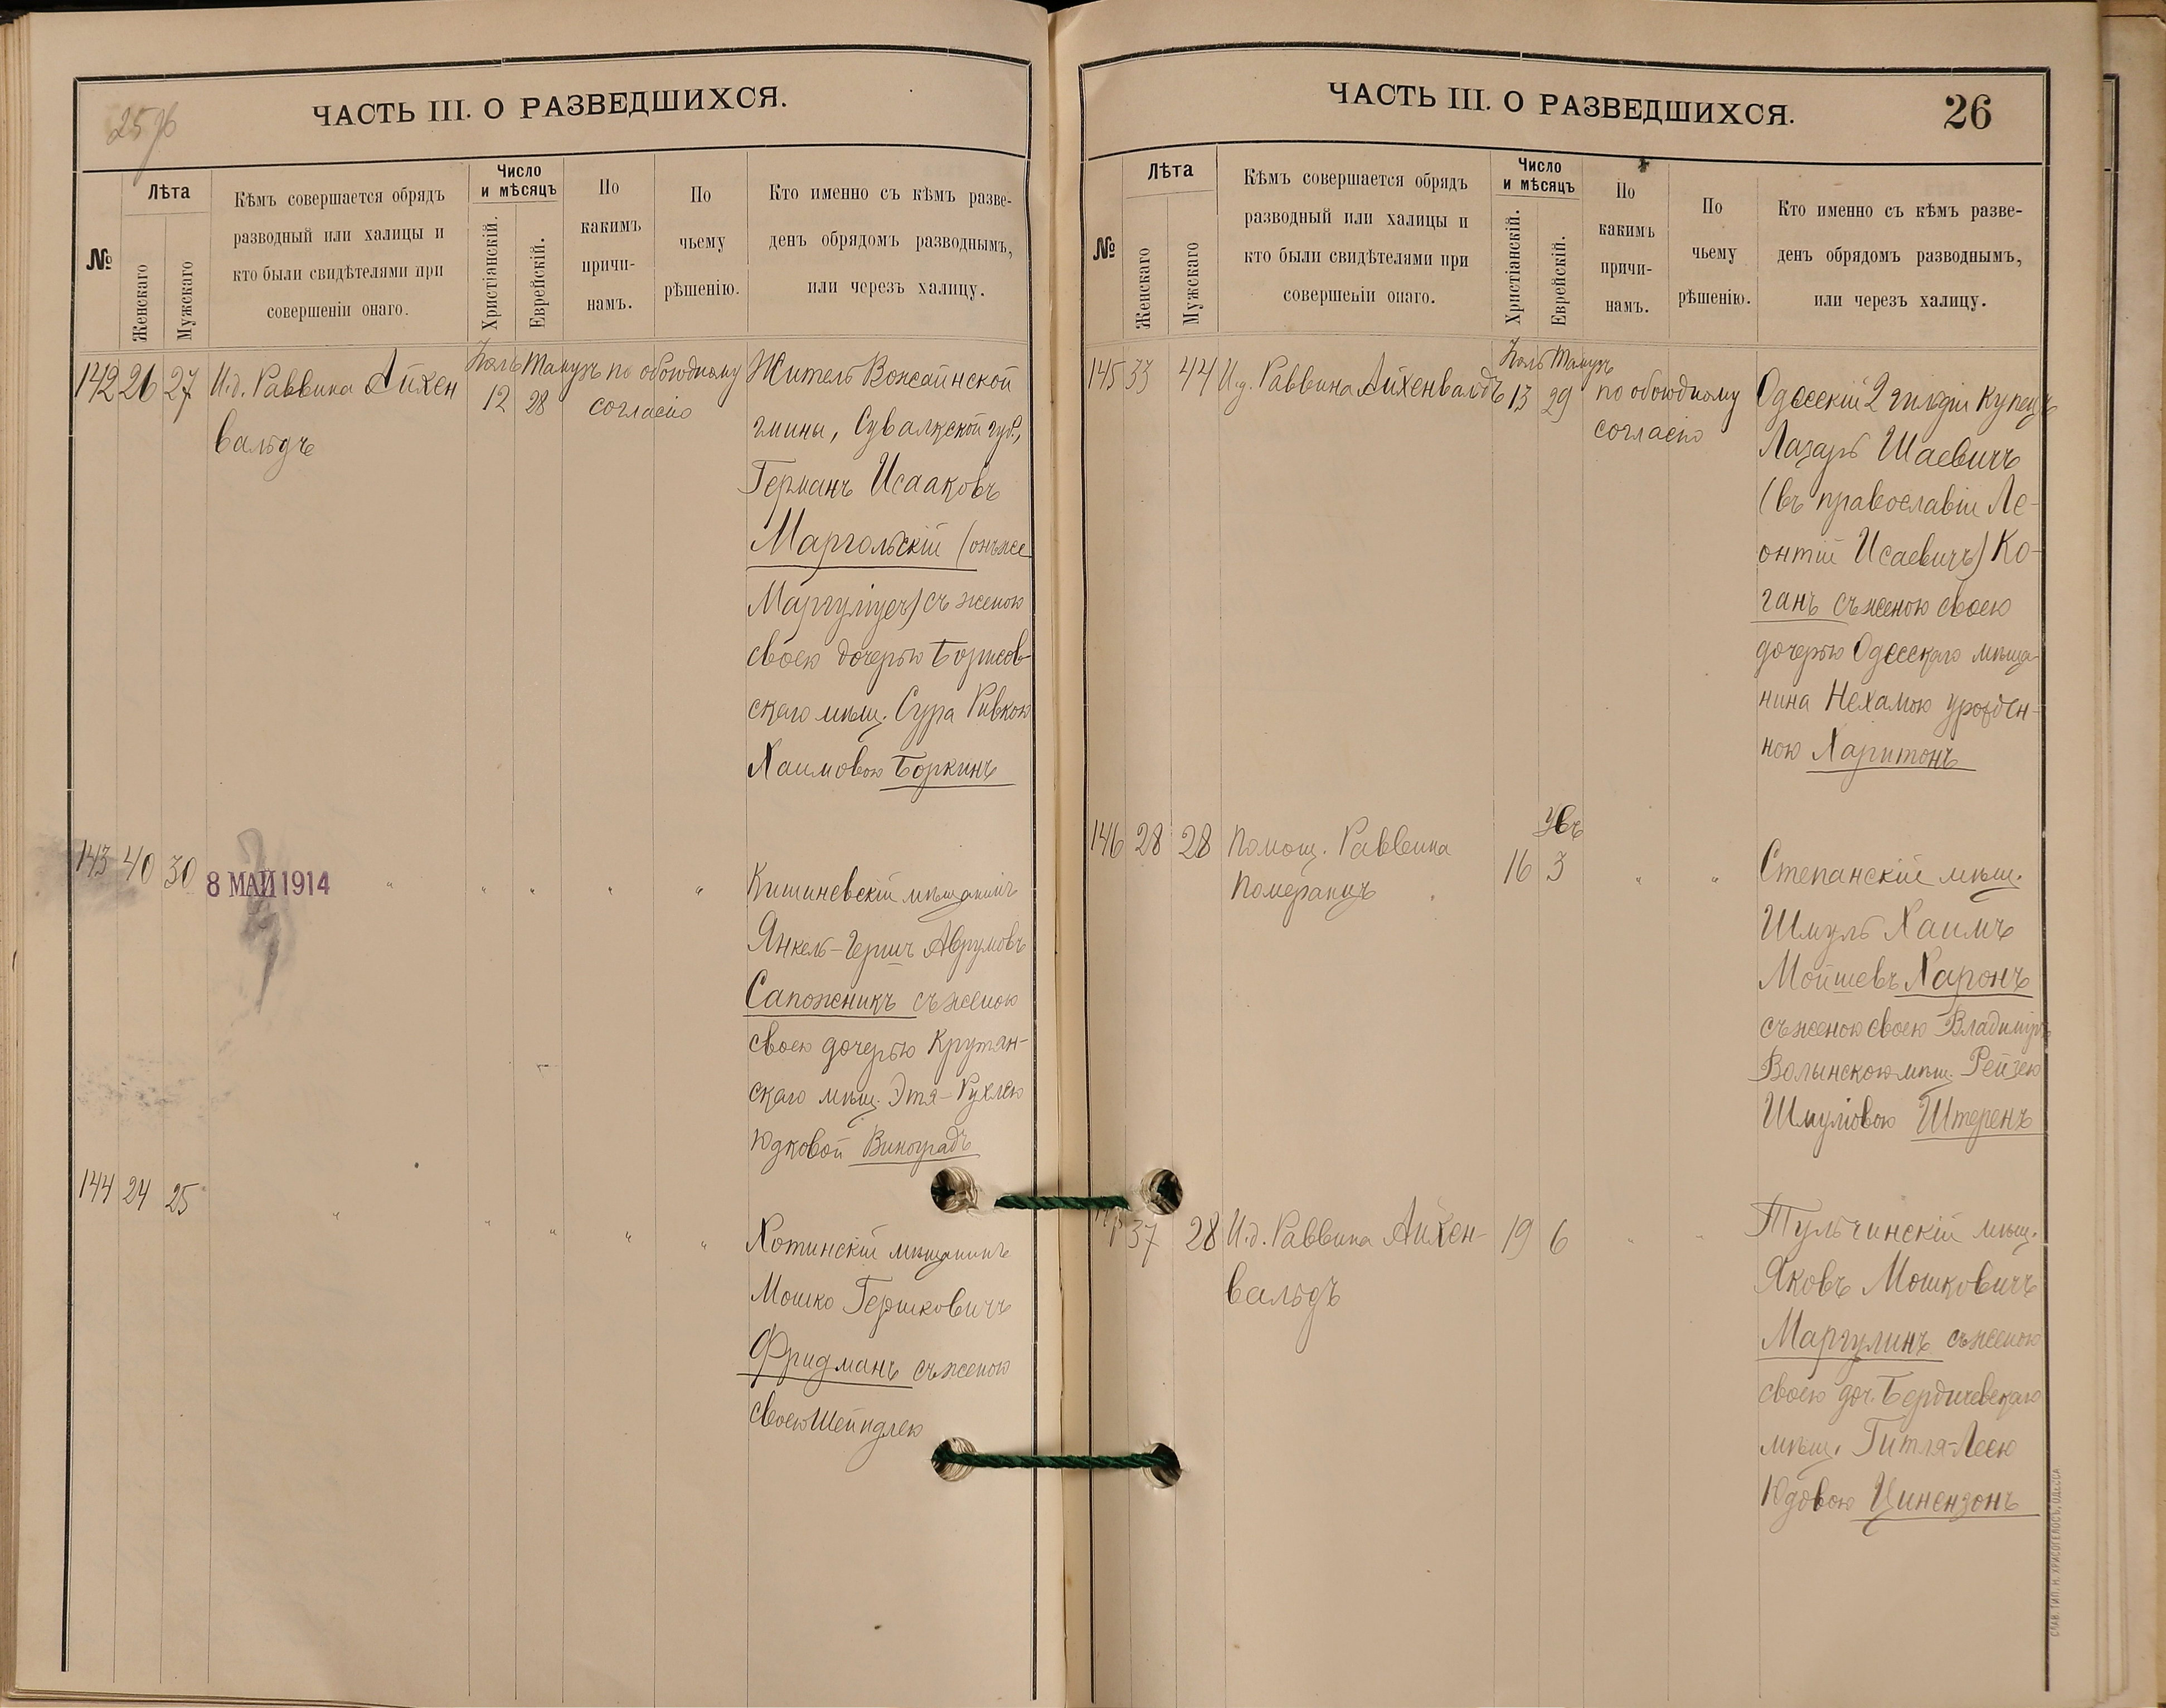 25 об
ЧАСТЬ III. О РАЗВЕДШИХСЯ.
№
Лѣта
Женскаго
Мужскаго
Кѣмъ совершается обрядъ
разводный или халицы и
кто были свидѣтелями при
совершеніи онаго.
Число
и мѣсяцъ
Христіанскій.
Еврейскій.
По
какимъ
причи-
намъ.
По
чьему
рѣшенію.
Кто именно съ кѣмъ разве-
денъ обрядомъ разводнымъ,
или черезъ халицу.
142 26 27 И.д. Раввина Айхен
вальдъ
Іюль Тамузъ
12 28
по обоюдному
согласію
Житель Воксаинской
гмины, Сувалкской губ.,
Германъ Исааковъ
Маргольскій (онъже
Маргуліусъ) съ женою
своею дочерью Борисов-
скаго мѣщ. Сура Ривкою
Хаимовою Боркинъ
143 40 30
8 МАЙ 1914
" " " " "
Кишиневскій мѣщанинъ
Янкель-Гершъ Аврумовъ
Сапожникъ съ женою
своею дочерью Крутян-
скаго мѣщ. Этя-Рухлею
Юдковой Виноградъ
144 24 25
" " " " "
Хотинскій мѣщанинъ
Мошко Гершковичъ
Фридманъ съ женою
своею Шейндлею
ЧАСТЬ III. О РАЗВЕДШИХСЯ.
26
№
Лѣта
Женскаго
Мужскаго
Кѣмъ совершается обрядъ
разводный или халицы и
кто были свидѣтелями при
совершеніи онаго.
Число
и мѣсяцъ
Христіанскій.
Еврейскій.
По
какимъ
причи-
намъ.
По
чьему
рѣшенію.
Кто именно съ кѣмъ разве-
денъ обрядомъ разводнымъ,
или черезъ халицу.
145 33 44 И.д. Раввина Айхенвальдъ
Іюль Тамузъ
13 29
по обоюдному
согласію
Одесскій 2 гильдіи купецъ
Лазарь Шаевичъ
(въ православіи Ле-
онтій Исаевичъ) Ко-
ганъ съ женою своею
дочерью Одесскаго мѣща-
нина Нехамою урожден-
ною Харитонъ
146 28 28 Помощ. Раввина
Померанцъ
Увъ
16 3
" "
Степанскій мѣщ.
Шмуль Хаимъ
Мойшевъ Харонъ
съ женою своею Владиміръ
Волынскою мѣщ. Рейзею
Шмуліовою Штеренъ
37 28 И.д. Раввина Айхен-
вальдъ
19 6
" "
Тульчинскій мѣщ.
Яковъ Мошковичъ
Маргулинъ съ женою
своею доч. Бердичевскаго
мѣщ. Гитля-Леею
Юдовою Цинензонъ
СЛАВ. ТИП. Н. ХРИСОГЕЛОСЪ, ОДЕССА